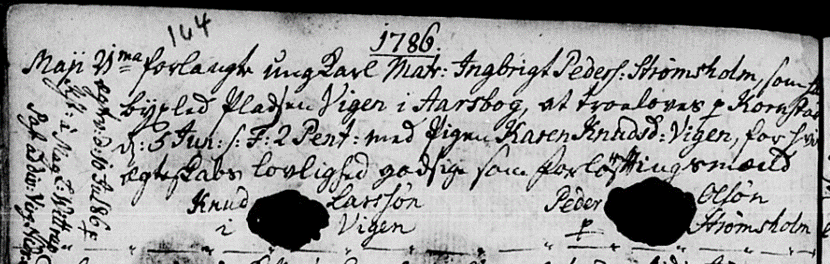 144
1786.
Maji 21ma forlangte ung Karl Matr: Ingbrigt Peders: Strømsholm, som
bÿxled Pladsen Vigen i Aarsbog, at troeloves p Kornstad
d: 5 Jun: s: F: 2 Pent: med Pigen Karen Knudsd: Vigen, for hvis
ægteskabs lovlighed godsige som forløftingsmænd
Knud Larssøn Peder Olsøn
i Vigen p Strømsholm